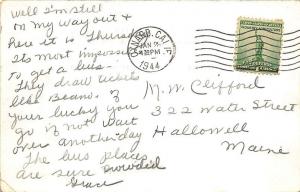 Well I'm still
on my way out &
here it is Thursday
Its most impossible
to get a bus -
They draw tickets
like Beano. If
your lucky you
go if not wait
over another day
The bus places
are sure crowded
Grace
CALIF.
JAN
PM
1944
M. W. Clifford
322 Water Street
Hallowell
Maine